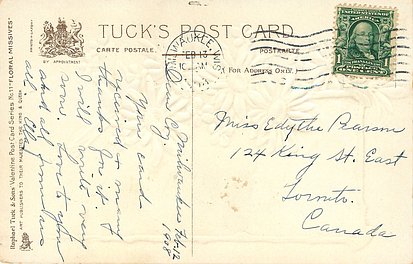 TUCK'S POST CARD
CARTE POSTALE.
POSTKARTE
(FOR ADDRESS ONLY.)
BY APPOINTMENT
MILWAUKEE, WIS.
FEB 13
Miss Edythe Pearson
124 King St. East
Toronto.
Canada
Milwaukee Feb 12
1908
Dear C
Your card
received & many
thanks for it.
I will write very
soon. Love to you
and all from us
all
Raphael Tuck & Sons' Valentine Post Card Series No 11 "FLORAL MISSIVES"
ART PUBLISHERS TO THEIR MAJESTIES THE KING & QUEEN